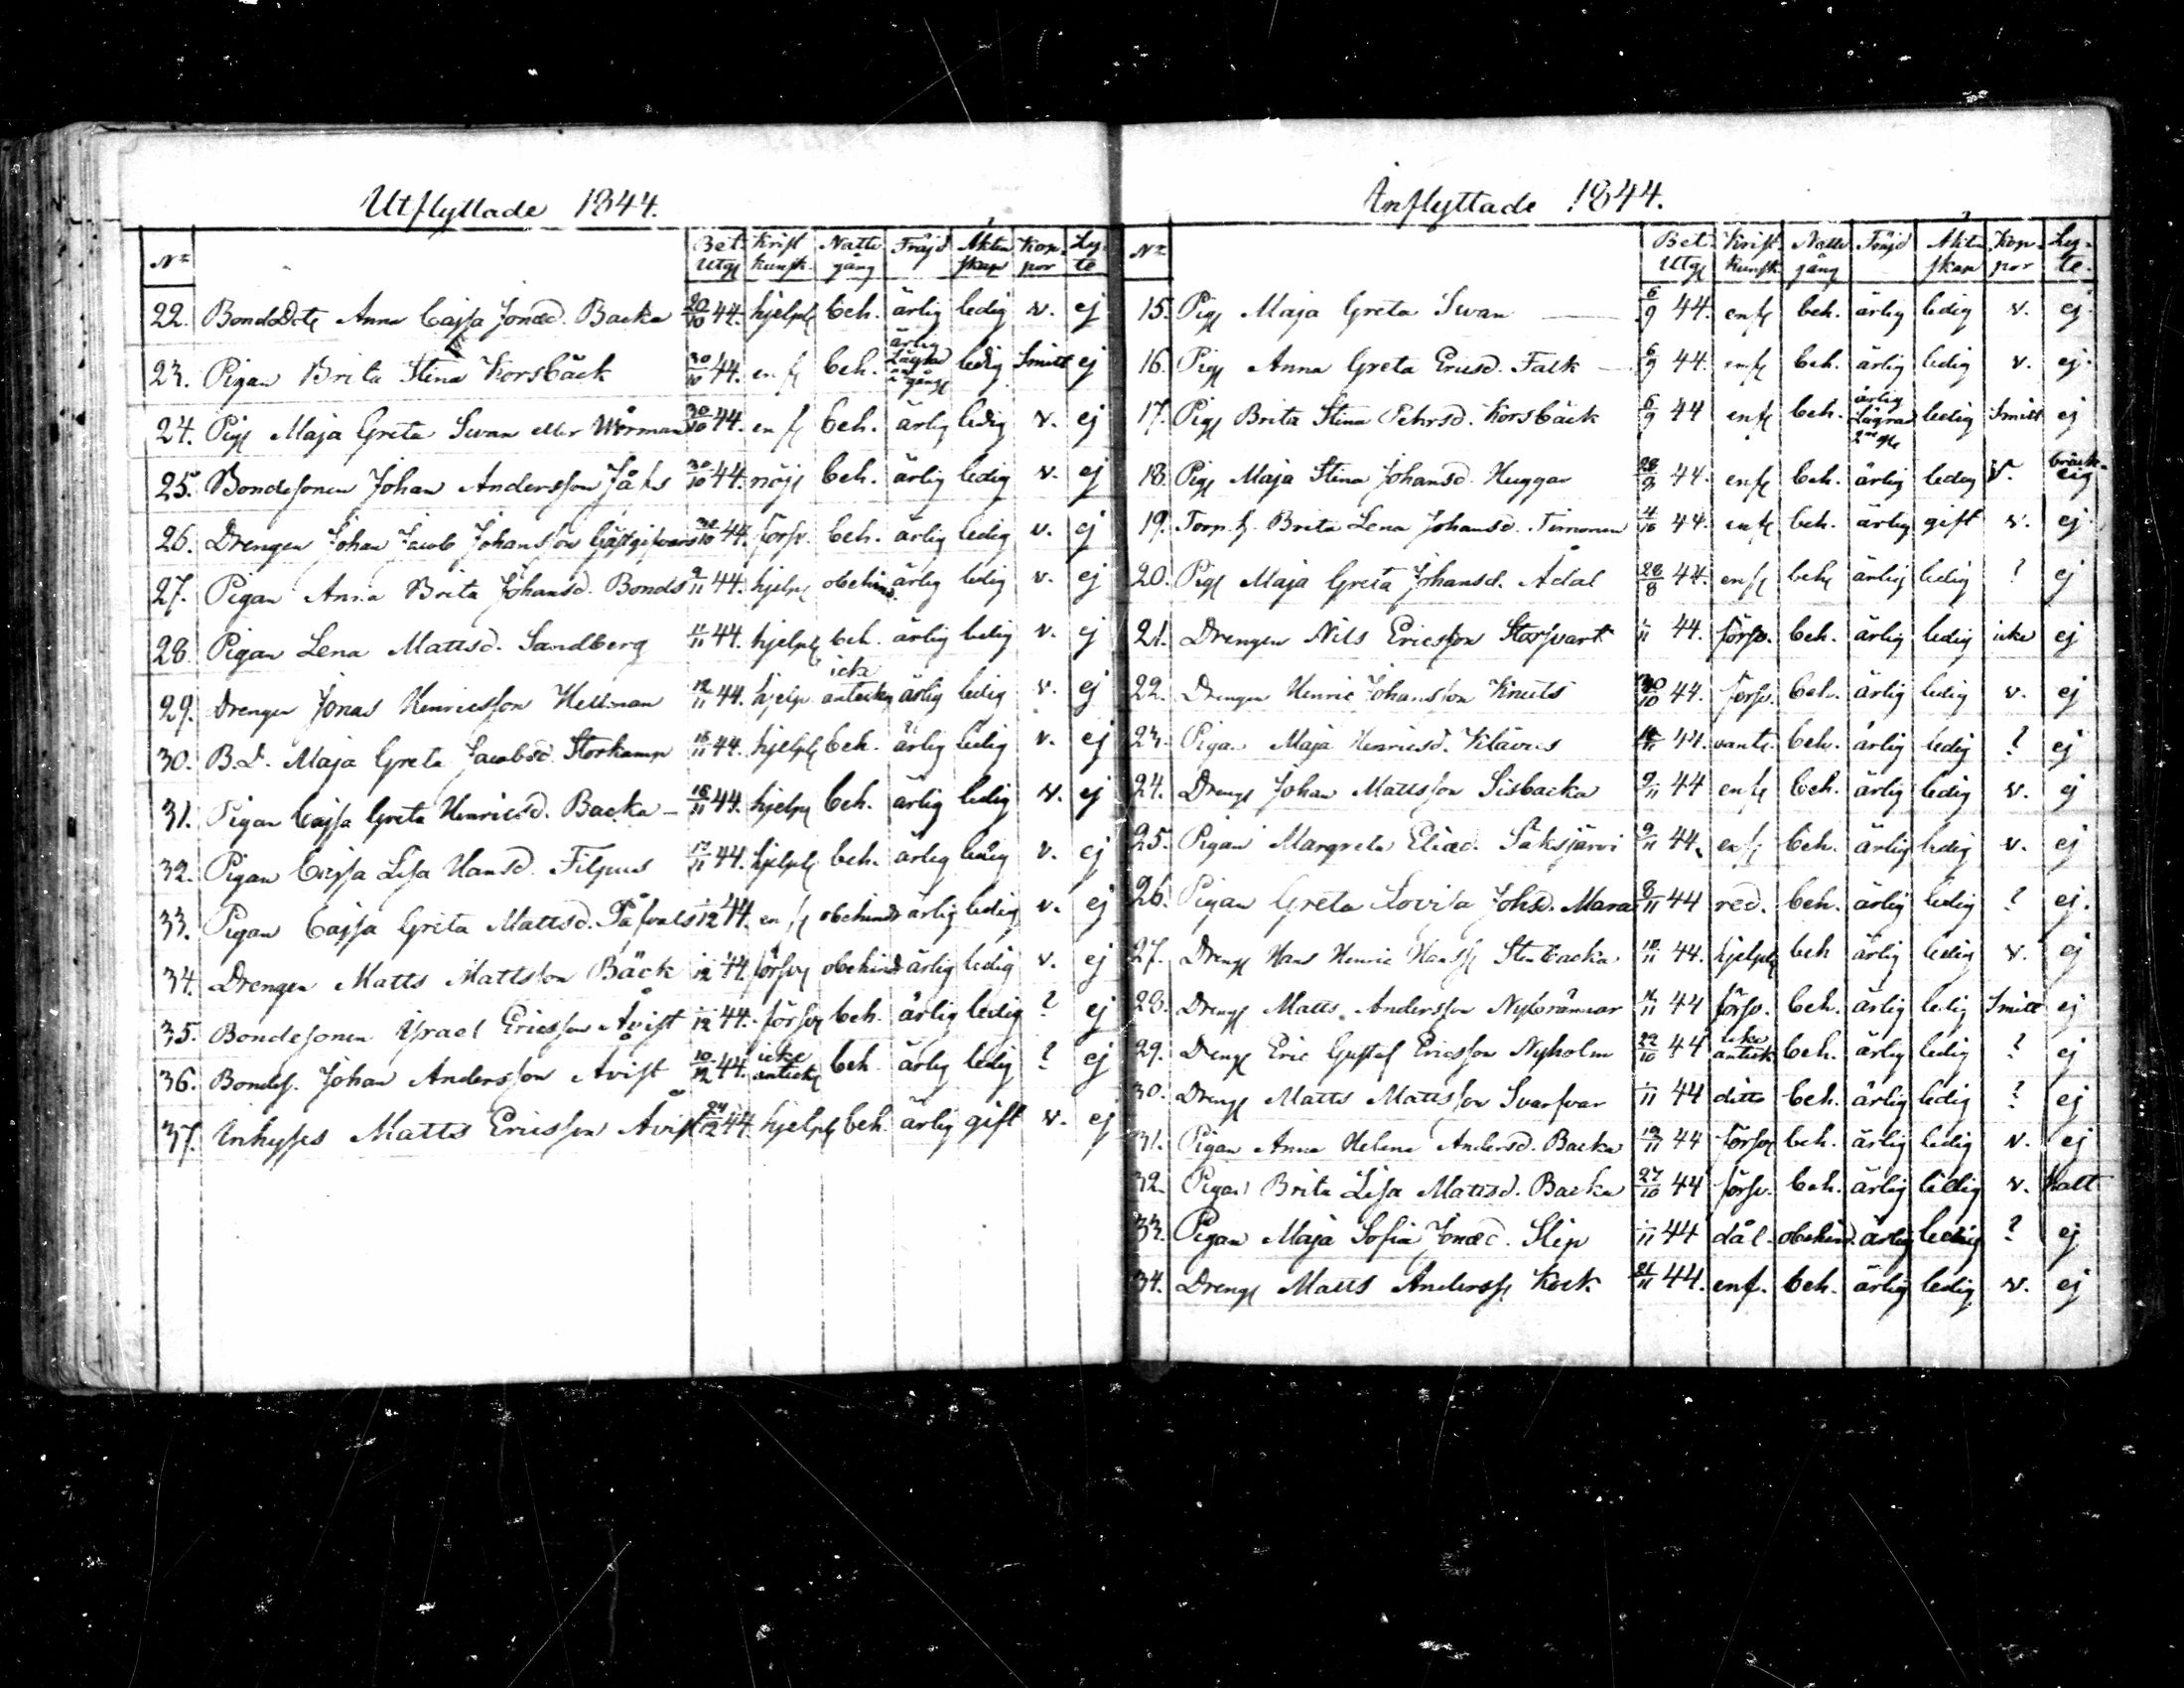 Utflyttade 1844.
No Bet. Utg. Krist. kunsk. Nattv. gång Fräjd Äkten skap Kop- por Ly- te
22. BondeDotr Anna Cajsa Jonæd. Backa 20/10 44. hjelpl beh. ärlig ledig v. ej
23. Pigan Brita Stina Korsbäck 30/10 44. enf beh. ärlig Lägrad gång ledig Smitt ej
24. Pig Maja Greta Swan eller Wörman 30/10 44. enf beh. ärlig ledig v. ej
25. Bondesonen Johan Andersson Jåfs 30/10 44. nöj beh. ärlig ledig v. ej
26. Drengen Johan Jacob Johansson Gästgifvars 44. försv. beh. ärlig ledig v. ej
27. Pigan Anna Brita Johansd. Bonds 9/11 44. hjelpl obehind ärlig ledig v. ej
28. Pigan Lena Mattsd. Sandberg 11/11 44. hjelpl beh. ärlig ledig v. ej
29. Drengen Jonas Henricsson Hellman 12/11 44. hjelp icke anteckn ärlig ledig v. ej
30. B.D. Maja Greta Jacobsd. Storkamp 44. hjelpl beh. ärlig ledig v. ej
31. Pigan Cajsa Greta Henricsd. Backa - 18/11 44. hjelpl beh. ärlig ledig v. ej
32. Pigan Cajsa Lisa Hansd. Filpus 44. hjelpl beh. ärlig ledig v. ej
33. Pigan Cajsa Greta Mattsd. Påfvals 12 44. enf obehindr ärlig ledig v. ej
34. Drengen Matts Mattsson Bäck 12 44. försv obehindr ärlig ledig v. ej
35. Bondesonen Israel Ericsson Åvist 12 44. försv beh. ärlig ledig ? ej
36. Bondes. Johan Andersson Åvist 10/12 44. icke anteck beh. ärlig ledig ? ej
37. Inhyses Matts Ericsson Åvist 24/12 44. hjelpl beh. ärlig gift v. ej
Inflyttade 1844.
No Bet. Utg. Krist. kunsk. Nattv gång Fräjd Äkten skap Kop- por Ly- te.
15. Pig Maja Greta Swan 6/9 44. enf beh. ärlig ledig v. ej
16. Pig Anna Greta Ericsd. Falk 6/9 44. enf beh. ärlig ledig v. ej
17. Pig Brita Stina Pehrsd. Korsbäck 6/9 44 enf beh. ärlig Lägrad ledig Smitt ej
18. Pig Maja Stina Johansd. Huggar 28/9 44. enf beh. ärlig ledig v. bräck- lig
19. Torp. h. Brita Lena Johansd. Timonen 4/10 44. enf beh. ärlig gift v. ej
20. Pig Maja Greta Johansd. Ådal 28/8 44. enf beh ärlig ledig ? ej
21. Drengen Nils Ericsson Storsvart 11 44. försv. beh. ärlig ledig icke ej
22. Drengen Henric Johansson Knuts 30/10 44. försv. beh. ärlig ledig v. ej
23. Pigan Maja Henricsd. Klavus 44. beh. ärlig ledig ? ej
24. Dreng Johan Mattsson Sisbacka 9/11 44 enf beh. ärlig ledig v. ej
25. Pigan Margreta Eliæd. Säksjärvi 9/11 44. enf beh. ärlig ledig v. ej
26. Pigan Greta Lovisa Johsd. Mara 8/11 44 red. beh. ärlig ledig ? ej.
27. Dreng Hans Henric Hanss Stenbacka 44. hjelpl beh ärlig ledig v. ej
28. Dreng Matts Andersson Nybrännar 44 försv. beh. ärlig ledig Smitt ej
29. Dreng Eric Gustaf Ericsson Nyholm 22/10 44 icke anteck beh. ärlig ledig ? ej
30. Dreng Matts Mattsson Svarfvar 11 44 ditto beh. ärlig ledig ? ej
31. Pigan Anna Helena Andersd. Backa 44 försv beh. ärlig ledig v. ej
32. Pigan Brita Lisa Mattsd. Backa 27/10 44 försv. beh. ärlig ledig v. Halt
33. Pigan Maja Sofia Jonæd. Slip 11 44 dål. obehind. ärlig ledig ? ej
34. Dreng Matts Anderss Kock 44. enf. beh. ärlig ledig v. ej